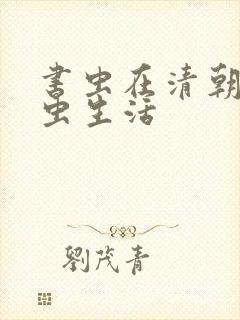 书虫在清朝
虫生活
劉茂青